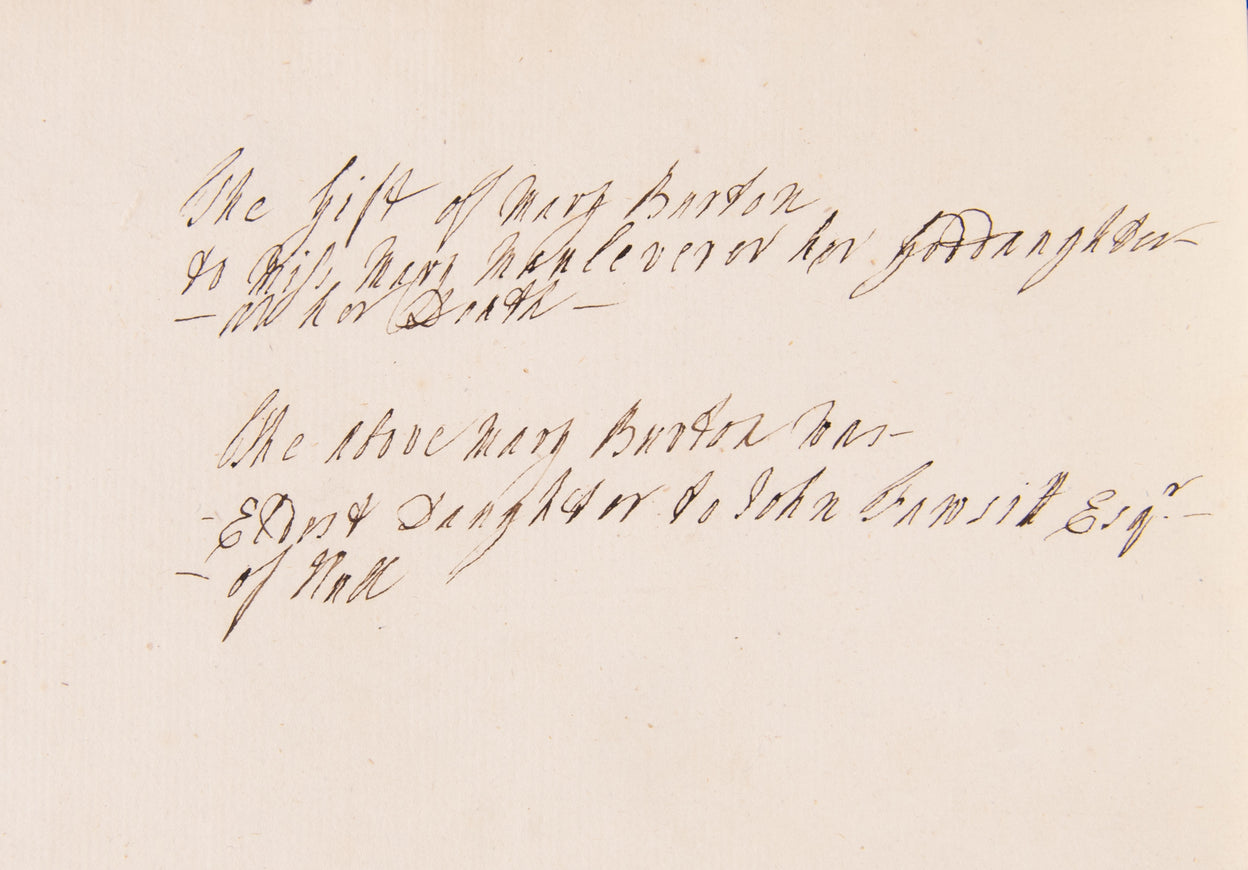 The Gift of Mary Burton
to Miss Mary Mauleverer her GodDaughter
— at her Death —
The above Mary Burton was —
- Eldest Daughter to John Fawsitt Esqr. —
— of Hull